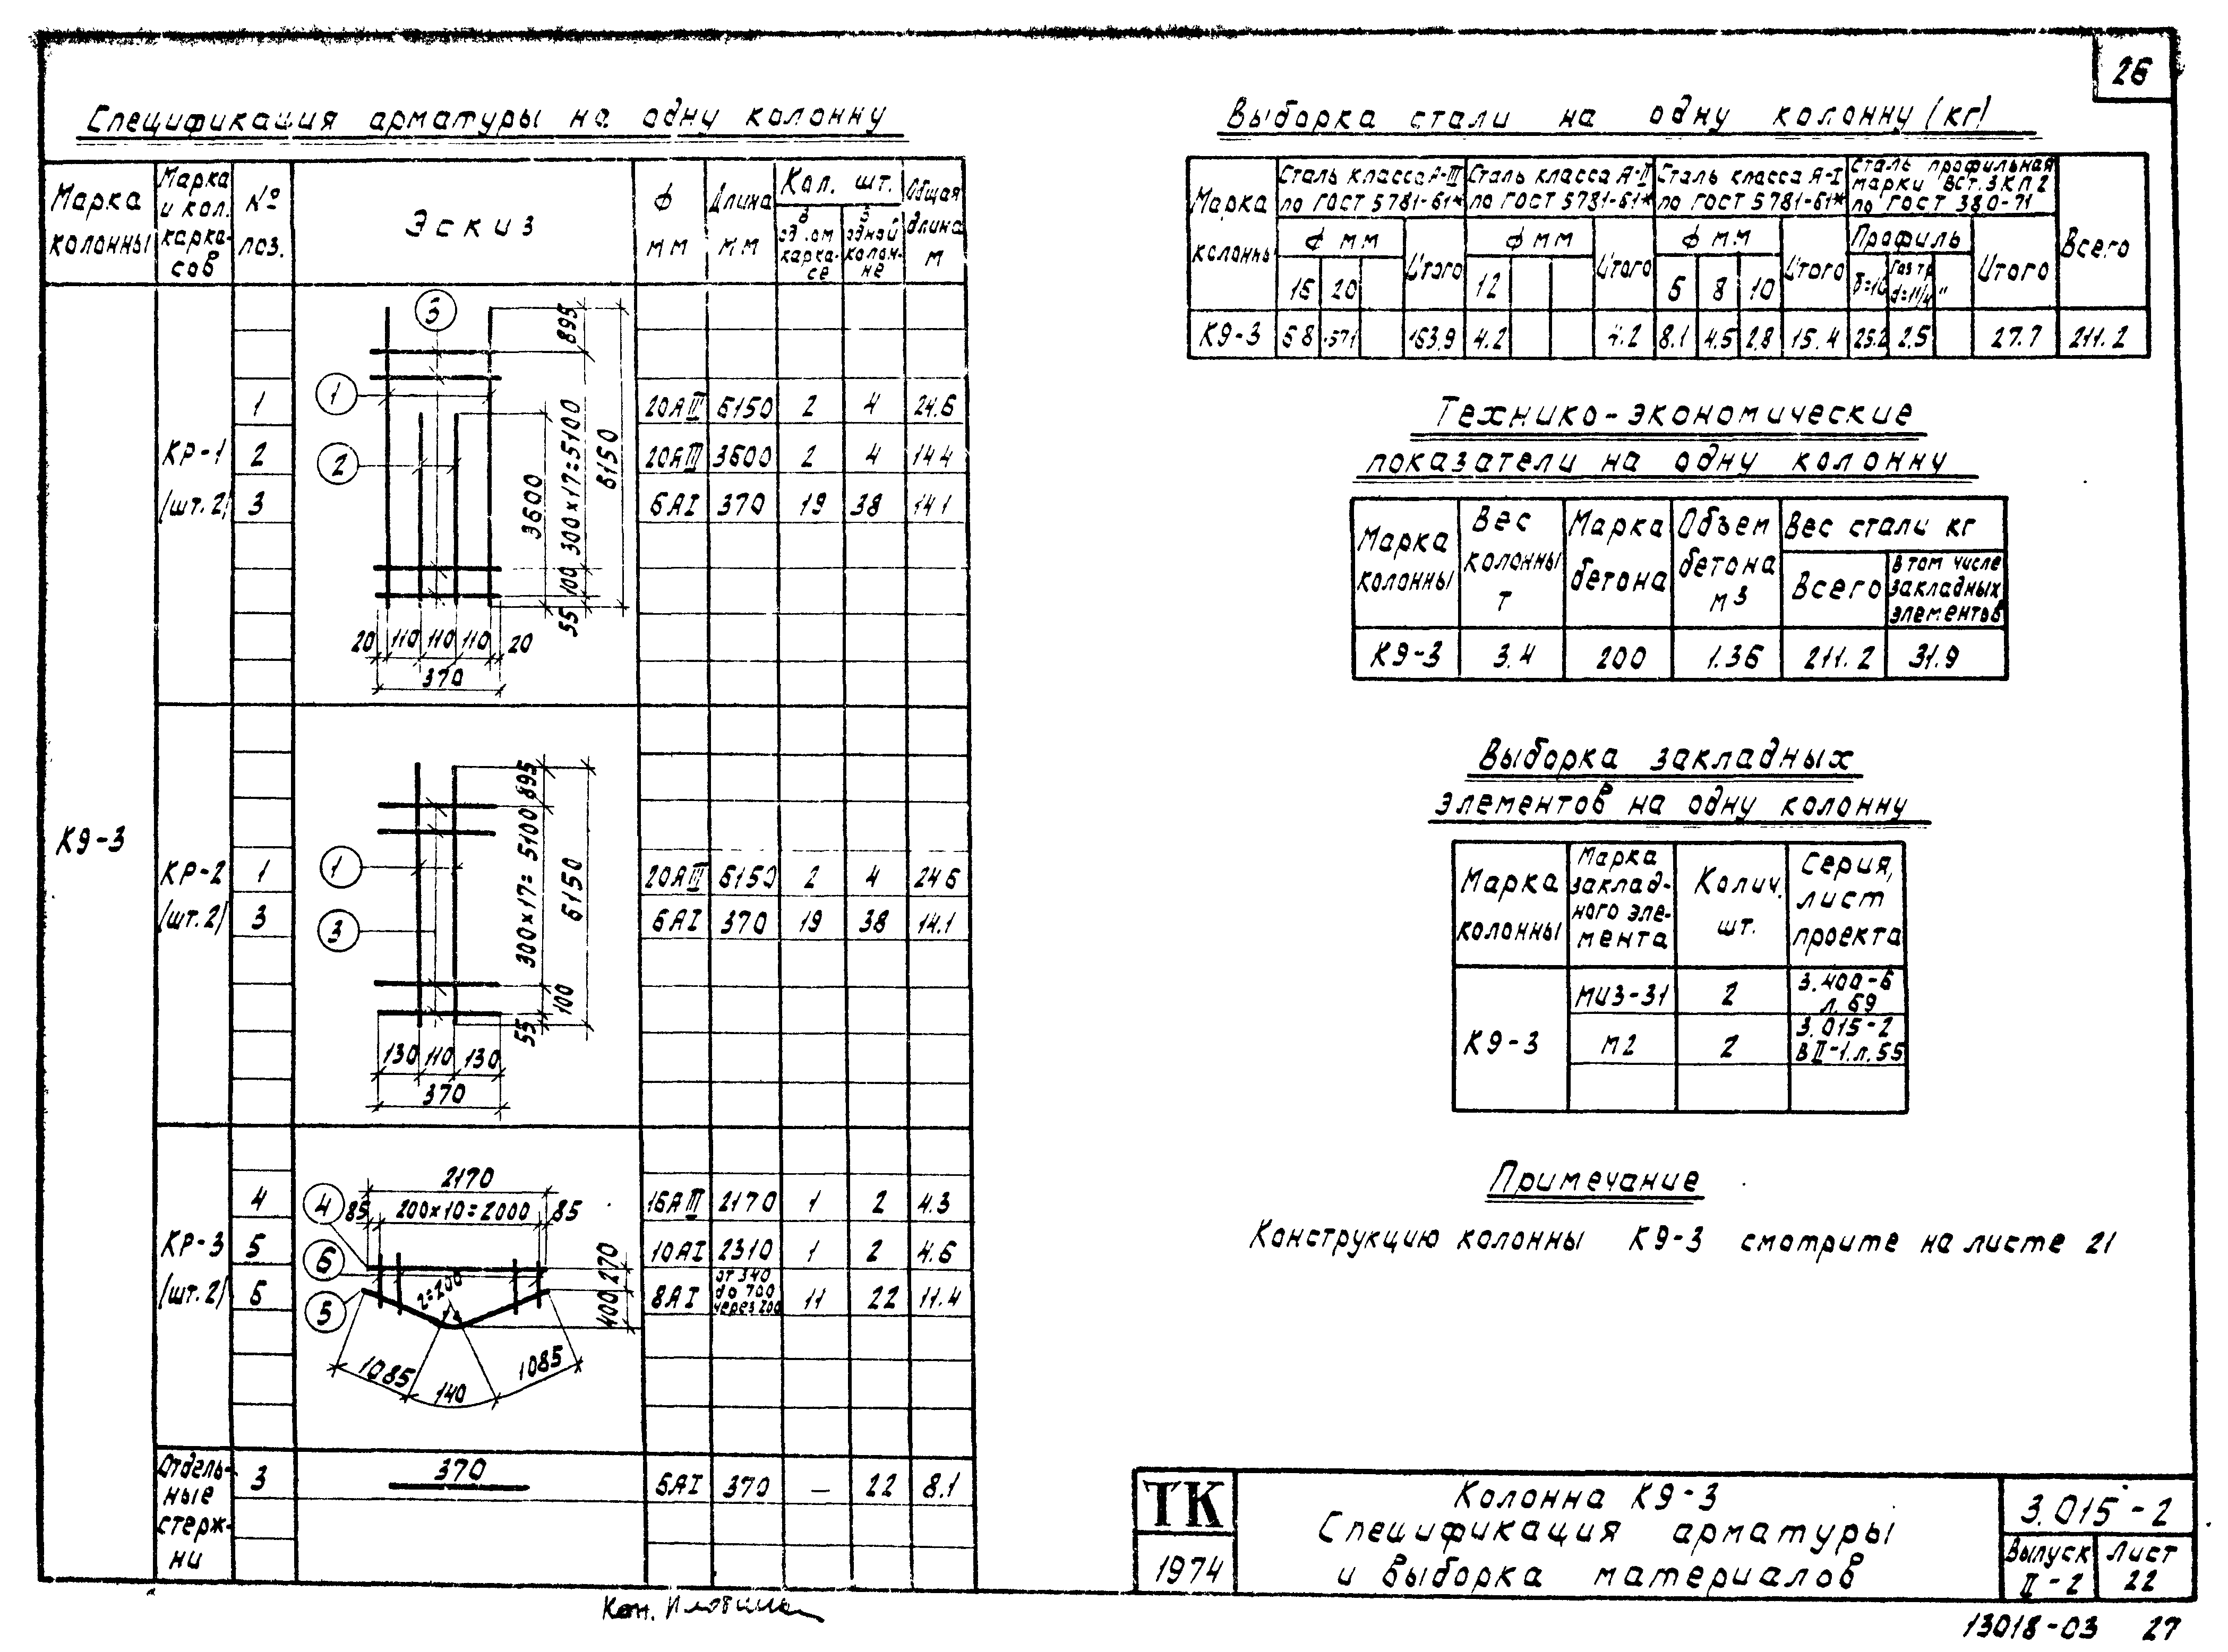 26
Спецификация арматуры на одну колонну
Марка колонны
Марка и кол. каркасов
№ поз.
Эскиз
ф мм
Длина мм
Кол. шт.
в одном каркасе
в одной колонне
Общая длина м
К9-3
КР-1 (шт. 2)
1 20АIII 6150 2 4 24.6
2 20АIII 3600 2 4 14.4
3 6АI 370 19 38 14.1
3
1
2
895
300×17=5100
6150
3600
100
55
20 110 110 110 20
370
КР-2 (шт. 2)
1 20АIII 6150 2 4 24.6
3 6АI 370 19 38 14.1
1
3
895
300×17=5100
6150
100
55
130 110 130
370
КР-3 (шт. 2)
4 16АIII 2170 1 2 4.3
5 10АI 2310 1 2 4.6
6 8АI от 340 до 700 через 200 11 22 11.4
2170
85 200×10=2000 85
4
6
5
270
400
r=200
1085 140 1085
Отдельные стержни
3 370 6АI 370 — 22 8.1
Выборка стали на одну колонну (кг)
Марка колонны
Сталь класса А-III по ГОСТ 5781-61*
Сталь класса А-II по ГОСТ 5781-61*
Сталь класса А-I по ГОСТ 5781-61*
Сталь профильная марки ВСт.3КП2 по ГОСТ 380-71
Всего
ф мм Итого ф мм Итого ф мм Итого Профиль Итого
16 20 12 6 8 10 δ=10 Газ тр. d=1¼"
К9-3 6.8 157.1 163.9 4.2 4.2 8.1 4.5 2.8 15.4 25.2 2.5 27.7 211.2
Технико-экономические
показатели на одну колонну
Марка колонны
Вес колонны т
Марка бетона
Объем бетона м3
Вес стали кг
Всего
В том числе закладных элементов
К9-3 3.4 200 1.36 211.2 31.9
Выборка закладных
элементов на одну колонну
Марка колонны
Марка закладного элемента
Колич. шт.
Серия, лист проекта
К9-3
МИ3-31 2 3.400-6 л. 69
М2 2 3.015-2 В II-1. л. 55
Примечание
Конструкцию колонны К9-3 смотрите на листе 21
ТК
1974
Колонна К9-3
Спецификация арматуры
и выборка материалов
3.015-2
Выпуск II-2
Лист 22
Коп.
13018-03 27